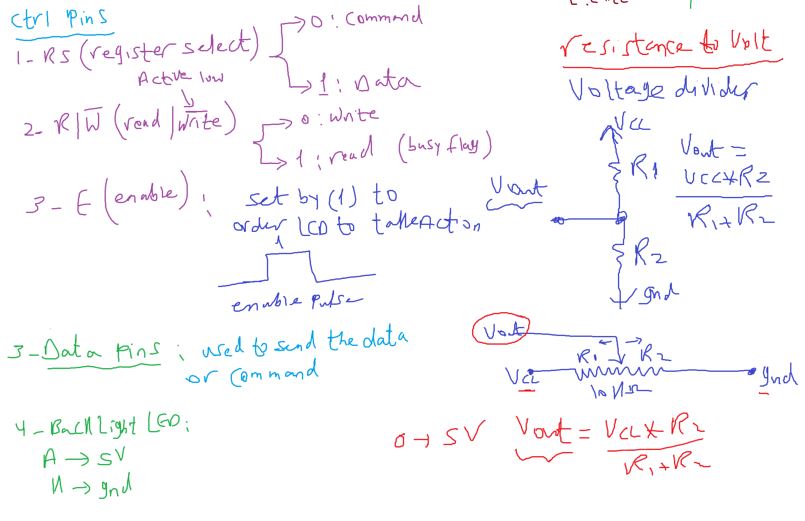 Ctrl Pins
1- RS (register select)
0: Command
1: Data
Active low
2- R|W̅ (read | W̅r̅i̅t̅e̅)
0: Write
1: read (busy flag)
3- E (enable) :
set by (1) to
order LCD to take Action
1
enable pulse
3- Data Pins : used to send the data
or Command
4- BackLight LED:
A → 5V
K → gnd
resistance to Volt
Voltage divider
VCC
R1
Vout
Vout =
VCC*R2
R1+R2
R2
gnd
Vout
R1 R2
VCC
10KΩ
gnd
0 → 5V Vout = VCC * R2
R1+R2